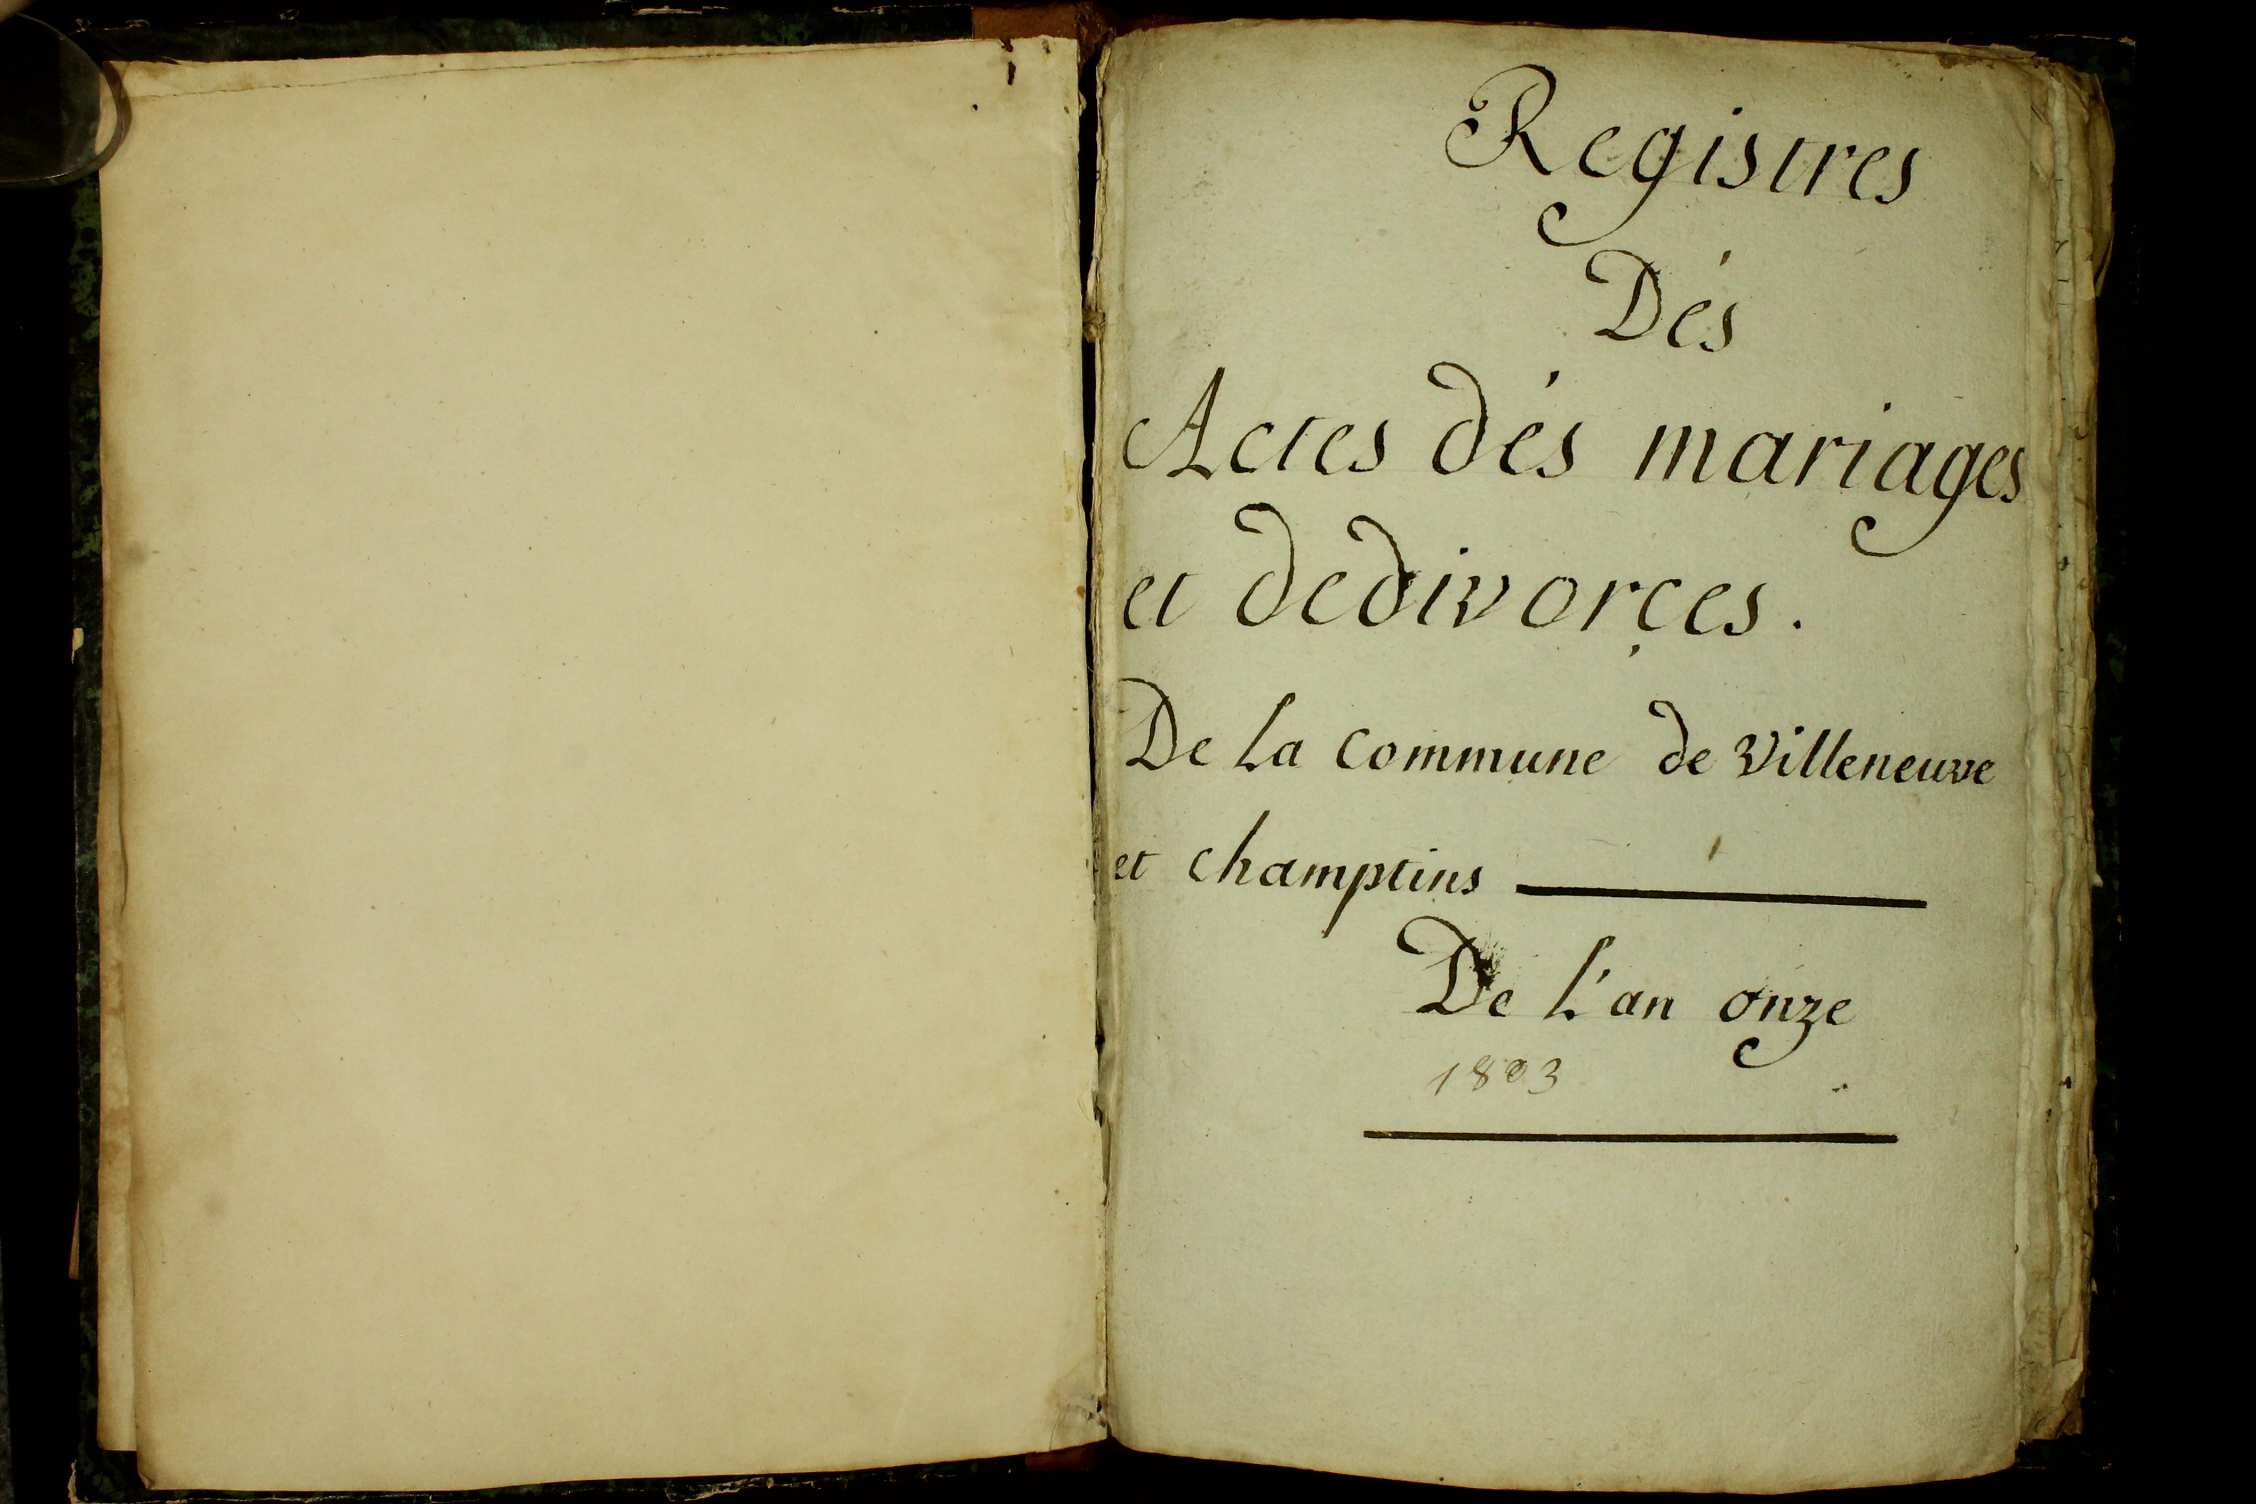 Registres
Dés
Actes dés mariages
et dedivorçes.
De la Commune de Villeneuve
et champtins
De l'an onze
1803